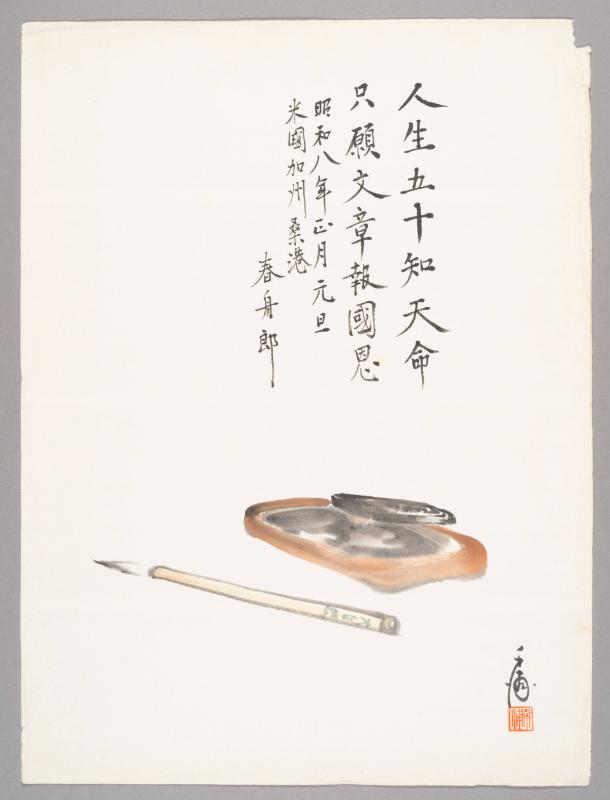 人生五十知天命
只願文章報國恩
昭和八年正月元旦
米國加州桑港
春舟郎